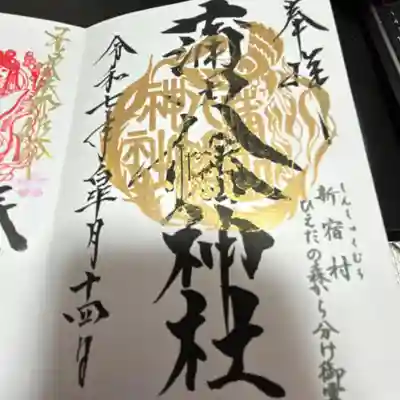 奉拝
新宿村
しんしゅくむら
ひえだの森から分け御霊
蒲田八幡神社
令和七年皐月十四日